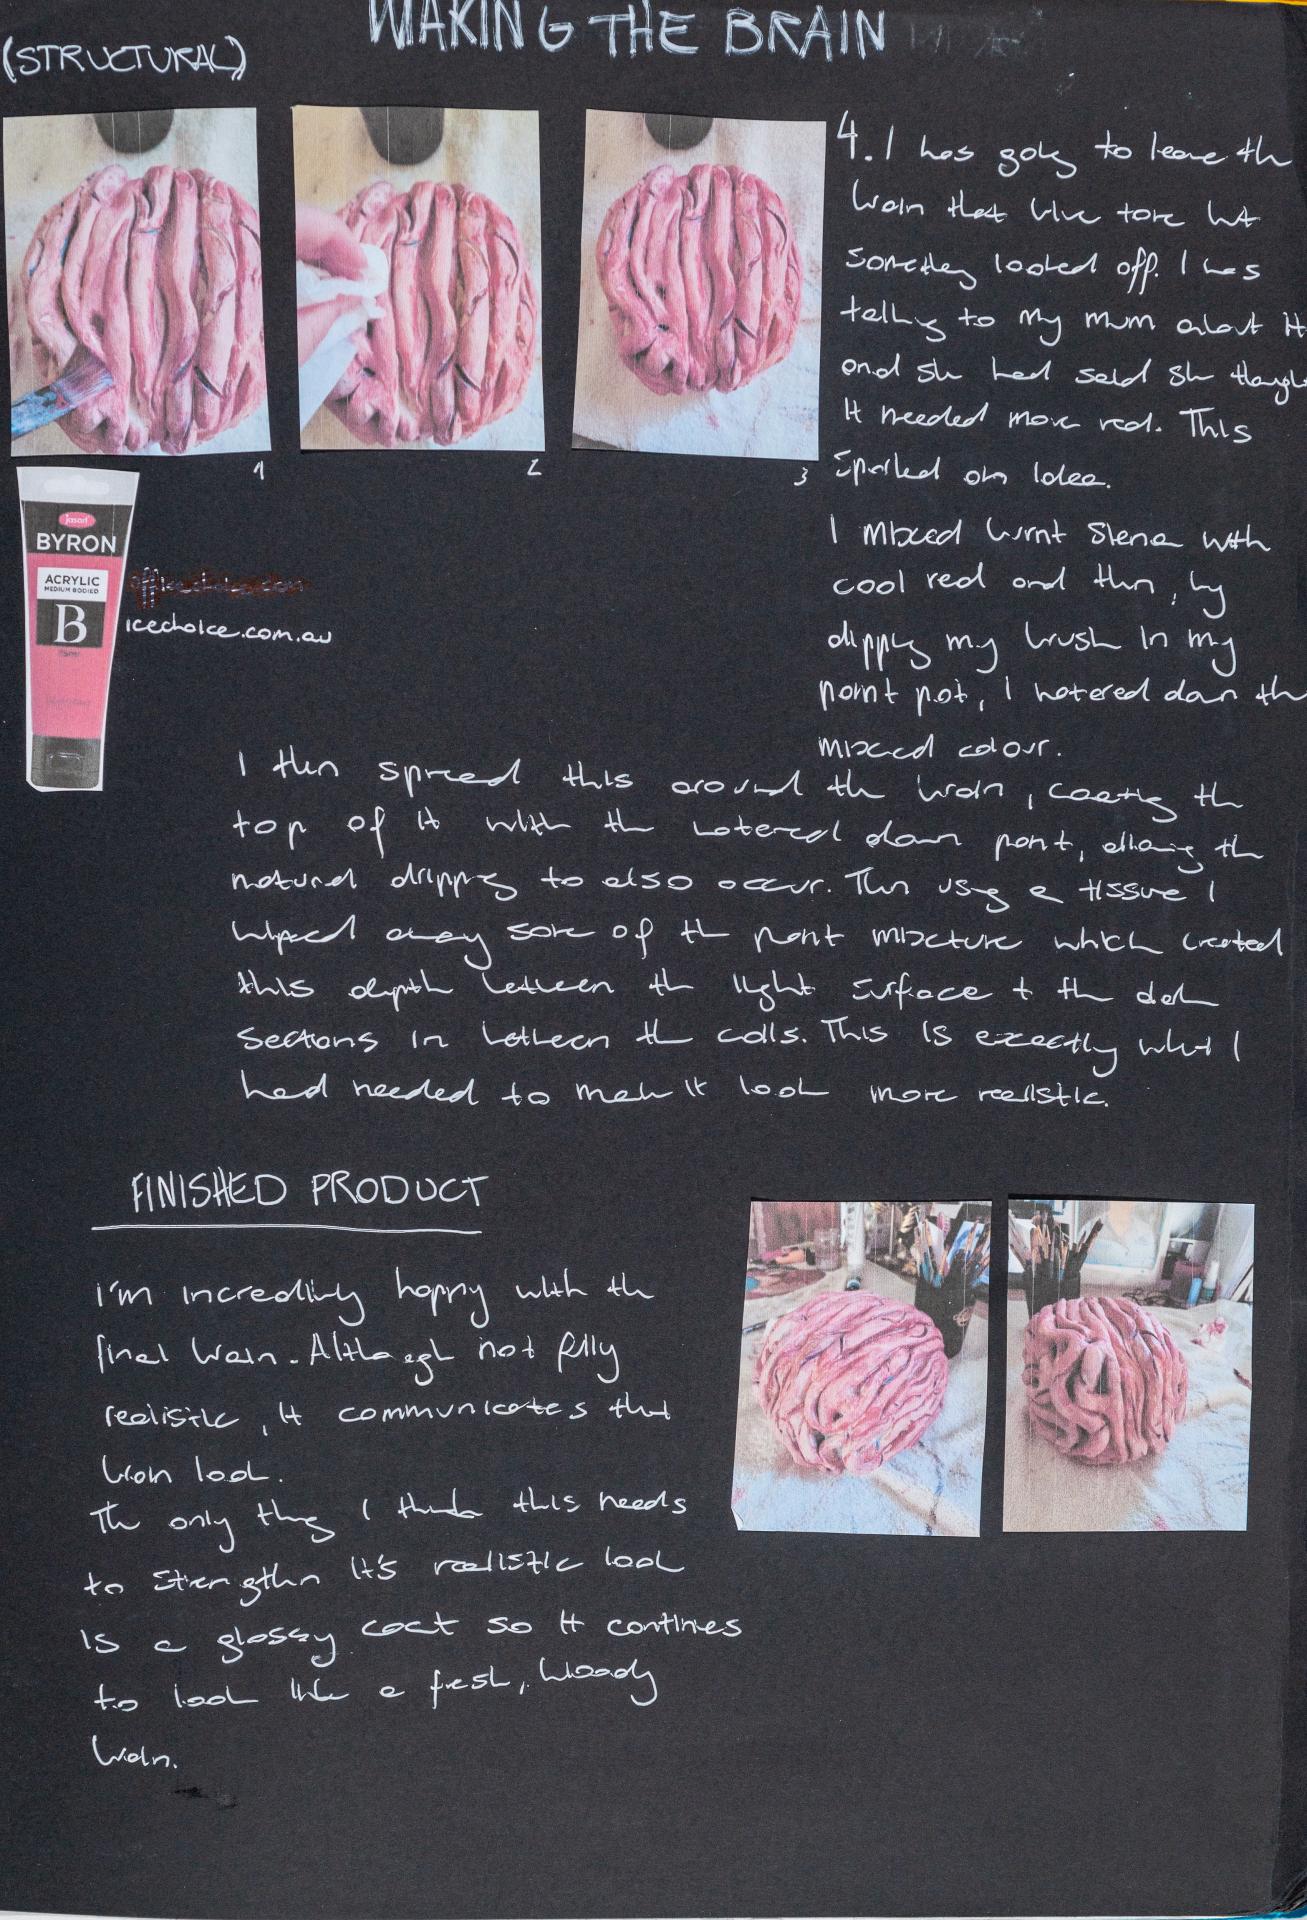 MAKING THE BRAIN
(STRUCTURAL)
4. I was going to leave the
brain that blue tone but
something looked off. I was
talking to my mum about it
and she had said she thought
it needed more red. This
sparked an idea.
1
2
3
jasart
BYRON
ACRYLIC
MEDIUM BODIED
B
75ml
icechoice.com.au
I mixed burnt Siena with
cool red and then, by
dipping my brush in my
paint pot, I watered down the
mixed colour.
I then spread this around the brain, coating the
top of it with the watered down paint, allowing the
natural dripping to also occur. Then using a tissue I
wiped away some of the paint mixture which created
this depth between the light surface + the dark
sections in between the coils. This is exactly what I
had needed to make it look more realistic.
FINISHED PRODUCT
I'm incredibly happy with the
final brain. Although not fully
realistic, it communicates that
brain look.
The only thing I think this needs
to strengthen it's realistic look
is a glossy coat so it continues
to look like a fresh, bloody
brain.